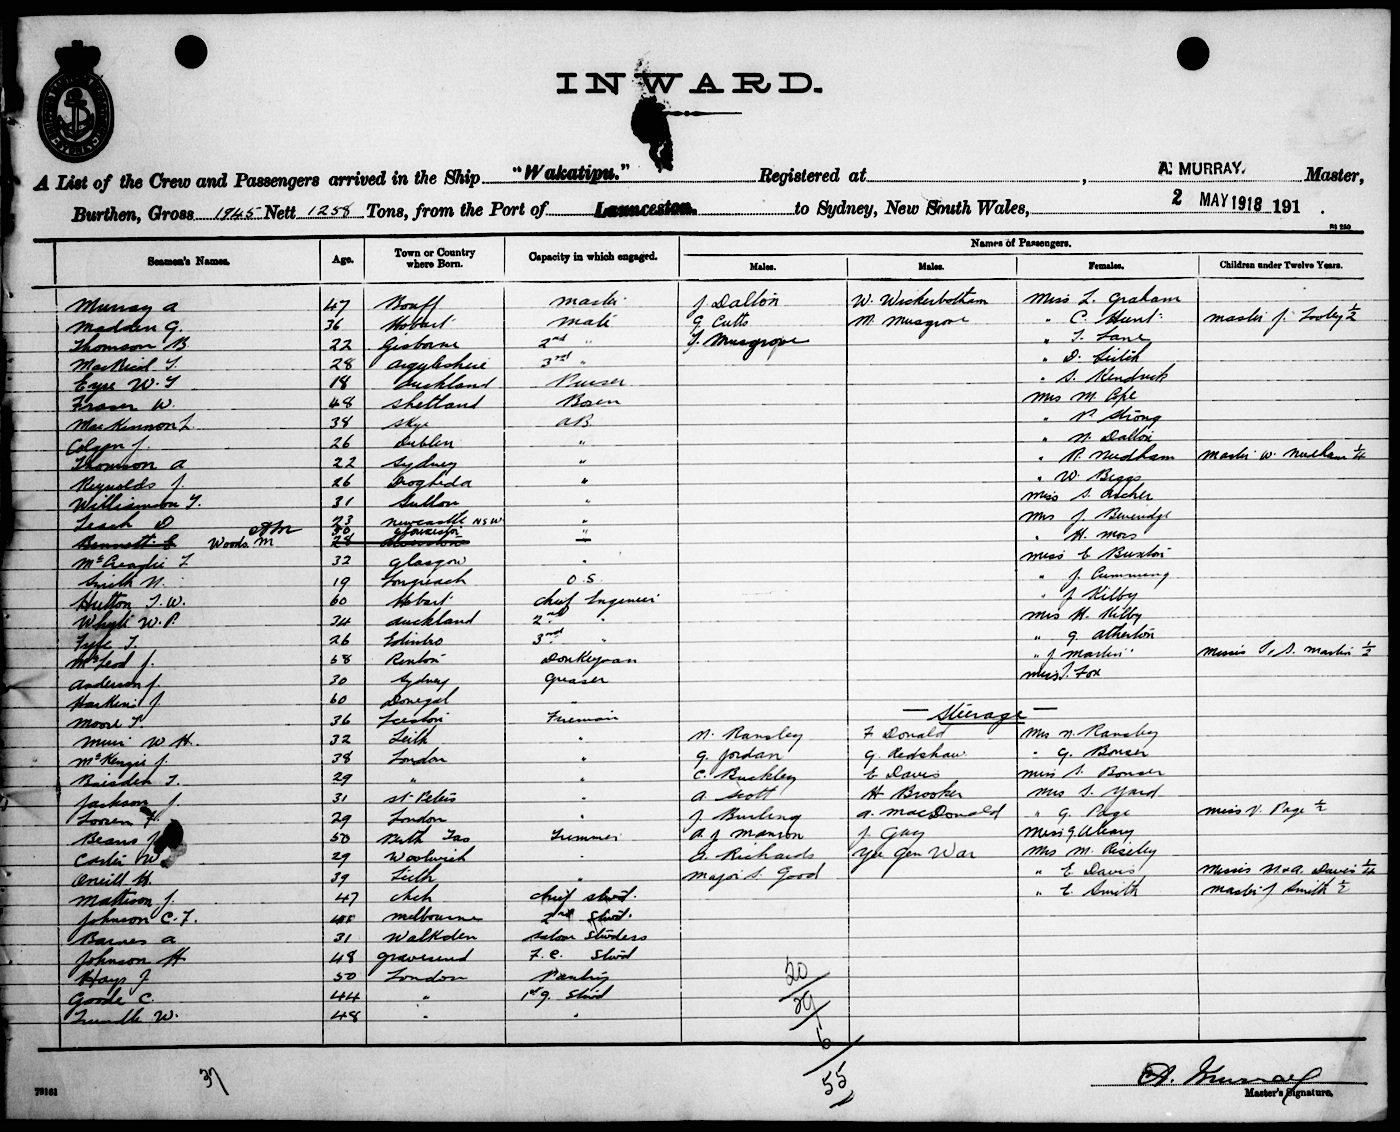 INWARD.
A List of the Crew and Passengers arrived in the Ship "Wakatipu." Registered at , A. MURRAY. Master,
Burthen, Gross 1945 Nett 1258 Tons, from the Port of Launceston. to Sydney, New South Wales, 2 MAY 1918 191 .
Names of Passengers.
Seamen's Names. Age. Town or Country where Born. Capacity in which engaged. Males. Males. Females. Children under Twelve Years.
Murray A 47 Banff Master J Dalton W. Wickerbotham Miss L. Graham
Madden G. 36 Hobart Mate G Cutts M. Musgrove " C. Hunt Master J. Tooley 1/2
Thomson B 22 Gisborne 2nd " T. Musgrove " T. Lane
28 Argyleshire 3rd " " D.
Eyre W. T 18 Auckland Purser " S. Kendrick
Fraser W. 48 Shetland Bosen Mrs M. Cape
MacKinnon L 38 Skye AB " P. Strong
J 26 Dublin " " N. Dalton
Thomson A 22 Sydney " " R. Needham Master W. Needham 1/4
Reynolds J. 26 Drogheda " " W Biggs
Williamson T. 31 Sutton " Miss S. Archer
Leach D 23 Newcastle NSW " Mrs J. Beveridge
Bennett E Woods M 30 Gloucester " " H. Moss
28
T 32 Glasgow " Miss E Buxton
Smith N. 19 Longreach O.S. " J. Cumming
Hutton T. W. 60 Hobart Chief Engineer " J Kilby
Whyte W. P. 34 Auckland 2nd " Mrs H. Kilby
Fyfe T. 26 Edinbro 3rd " " G. Atherton
McLeod J. 58 Renton Donkeyman " J Martin Misses T, S. Martin 1/2
Anderson J 30 Sydney Greaser Miss I. Fox
Harkin J 60 Donegal "
Moore T. 36 L'ceston Fireman — Steerage —
Muir W H. 32 Leith " N. Ransley F Donald Mrs N. Ransley
McKenzie J. 38 London " G. Jordan G. Redshaw " G. Bonser
Raisden T. 29 " " C. Buckley E Davis Miss S. Bonser
Jackson J. 31 St Peters " A. Scott H Brooker Mrs S. Yard
29 London " J Burling A. MacDonald " G. Page Miss V. Page 1/2
Beams J 50 Perth Tas Trimmer A. J Manson J. Guy Miss G Cleary
Carter W 29 Woolwich " G. Richards Yee Gen War Mrs M. Riseley
Oneill H. 39 Leith " Major S. Good " E Davis Misses M & A Davis 1/4
Mattison J. 47 Chief Stwd. " E. Smith Master J Smith 1/2
Johnson C. F. 45 Melbourne 2nd Stwd.
Barnes A 31 Walkden Saloon Stwdess
Johnson H 48 Gravesend F.C. Stwd
Hays J 50 London Pantry
Goode C. 44 " 1st G. Stwd
Trundle W. 48 " "
20/
29/
6/
55
37
A. Murray
Master's Signature.
79161